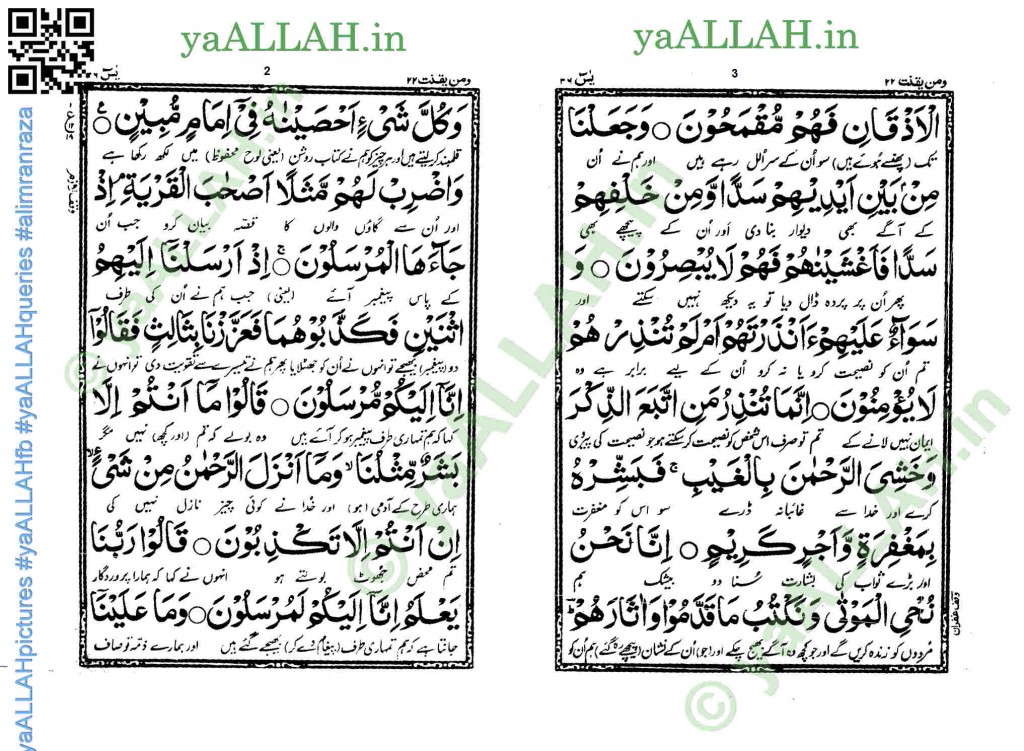 yaALLAH.in
yaALLAH.in
3
ومن یقنت ۲۲
یٰسٓ ۳۶
الْاَذْقَانِ فَهُمْ مُّقْمَحُوْنَ ○ وَجَعَلْنَا
تک (پھنسے ہوئے ہیں) سو ان کے سر اُلل رہے ہیں اور ہم نے اُن
مِنْۢ بَيْنِ اَيْدِيْهِمْ سَدًّا وَّمِنْ خَلْفِهِمْ
کے آگے بھی دیوار بنا دی اور اُن کے پیچھے بھی
سَدًّا فَاَغْشَيْنٰهُمْ فَهُمْ لَا يُبْصِرُوْنَ ○ وَ
پھر اُن پر پردہ ڈال دیا تو یہ دیکھ نہیں سکتے اور
سَوَآءٌ عَلَيْهِمْ ءَاَنْذَرْتَهُمْ اَمْ لَمْ تُنْذِرْهُمْ
تم اُن کو نصیحت کرو یا نہ کرو اُن کے لیے برابر ہے وہ
لَا يُؤْمِنُوْنَ ○ اِنَّمَا تُنْذِرُ مَنِ اتَّبَعَ الذِّكْرَ
ایمان نہیں لانے کے تم تو صرف اس شخص کو نصیحت کر سکتے ہو جو نصیحت کی پیروی
وَخَشِيَ الرَّحْمٰنَ بِالْغَيْبِ ۚ فَبَشِّرْهُ
کرے اور خدا سے غائبانہ ڈرے سو اس کو مغفرت
بِمَغْفِرَةٍ وَّاَجْرٍ كَرِيْمٍ ○ اِنَّا نَحْنُ
اور بڑے ثواب کی بشارت سُنا دو بیشک ہم
نُحْيِ الْمَوْتٰى وَنَكْتُبُ مَا قَدَّمُوْا وَاٰثَارَهُمْ ؕ
مُردوں کو زندہ کریں گے اور جو کچھ وہ آگے بھیج چکے اور (جو) اُن کے نشان (پیچھے رہ گئے) ہم ان کو
وقف غفران
2
ومن یقنت ۲۲
یٰسٓ ۳۶
وَكُلَّ شَيْءٍ اَحْصَيْنٰهُ فِيْٓ اِمَامٍ مُّبِيْنٍ ○
قلمبند کر لیتے ہیں اور ہر چیز کو ہم نے کتاب روشن (یعنی لوح محفوظ) میں لکھ رکھا ہے
وَاضْرِبْ لَهُمْ مَّثَلًا اَصْحٰبَ الْقَرْيَةِ ۘ اِذْ
اور اُن سے گاؤں والوں کا قصّہ بیان کرو جب اُن
جَآءَهَا الْمُرْسَلُوْنَ ○ ۚ اِذْ اَرْسَلْنَآ اِلَيْهِمُ
کے پاس پیغمبر آئے (یعنی) جب ہم نے اُن کی طرف
اثْنَيْنِ فَكَذَّبُوْهُمَا فَعَزَّزْنَا بِثَالِثٍ فَقَالُوْٓا
دو (پیغمبر) بھیجے تو انہوں نے اُن کو جھٹلایا پھر ہم نے تیسرے سے تقویت دی تو انہوں نے
اِنَّآ اِلَيْكُمْ مُّرْسَلُوْنَ ○ قَالُوْا مَآ اَنْتُمْ اِلَّا
کہا کہ ہم تمہاری طرف پیغمبر ہو کر آئے ہیں وہ بولے کہ تم (اور کچھ) نہیں مگر
بَشَرٌ مِّثْلُنَا ۙ وَمَآ اَنْزَلَ الرَّحْمٰنُ مِنْ شَيْءٍ ۙ
ہماری طرح کے آدمی (ہو) اور خدا نے کوئی چیز نازل نہیں کی
اِنْ اَنْتُمْ اِلَّا تَكْذِبُوْنَ ○ قَالُوْا رَبُّنَا
تم محض جھوٹ بولتے ہو انہوں نے کہا کہ ہمارا پروردگار
يَعْلَمُ اِنَّآ اِلَيْكُمْ لَمُرْسَلُوْنَ ○ وَمَا عَلَيْنَآ
جانتا ہے کہ ہم تمہاری طرف (پیغام دے کر) بھیجے گئے ہیں اور ہمارے ذمہ تو صاف
yaALLAHpictures #yaALLAHfb #yaALLAHqueries #alimranraza
© yaALLAH.in
© yaALLAH.in
© yaALLAH.in